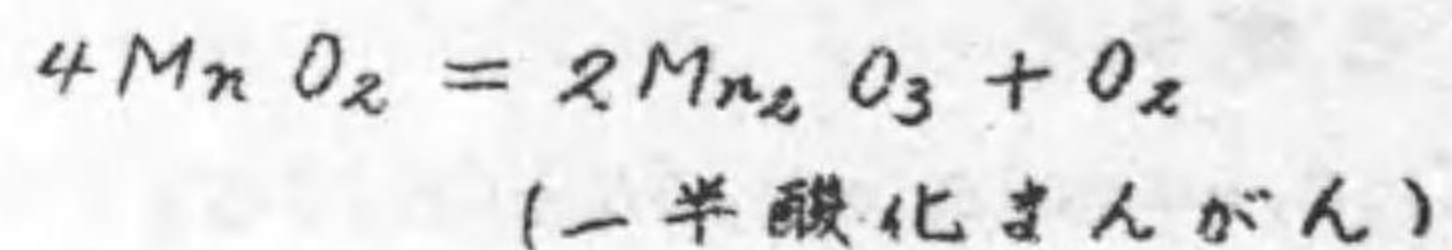 4MnO₂ = 2Mn₂O₃ + O₂
(一半酸化まんがん)